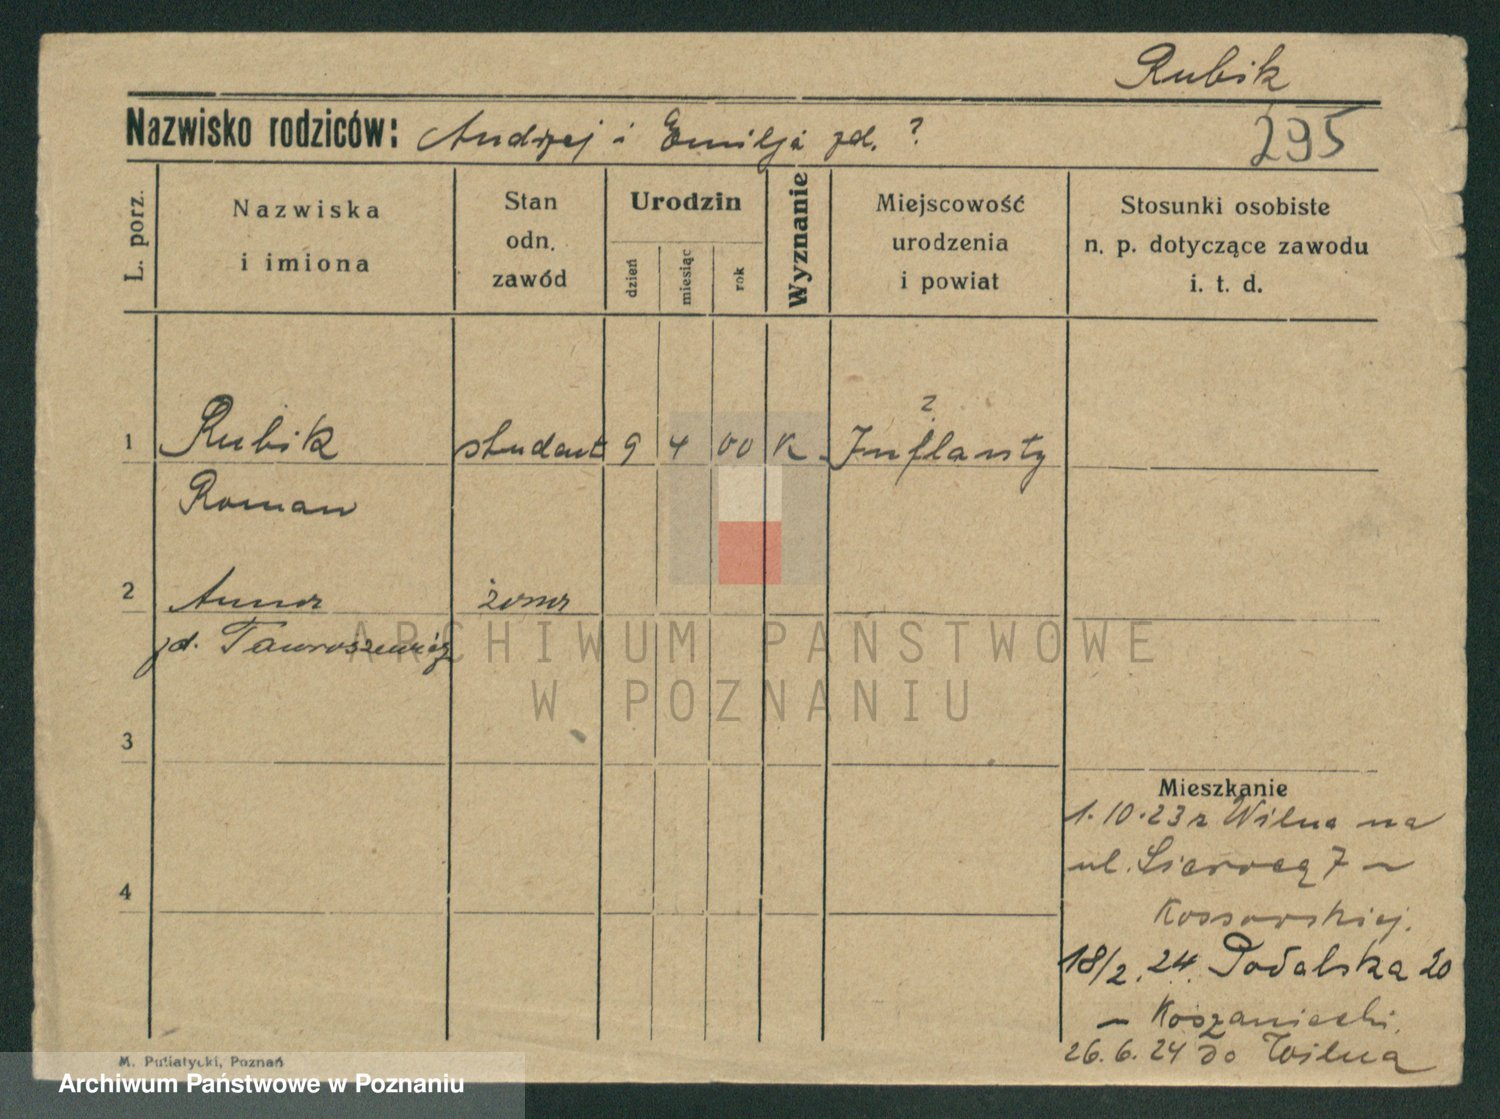 Rubik
Nazwisko rodziców: Andrzej i Emilja zd. ?
295
L. porz.
Nazwiska
i imiona
Stan
odn.
zawód
Urodzin
dzień
miesiąc
rok
Wyznanie
Miejscowość
urodzenia
i powiat
Stosunki osobiste
n. p. dotyczące zawodu
i. t. d.
?
1 Rubik student 9 4 00 K Inflanty
Roman
2 Anna żona
zd. Tauroszewicz
ARCHIWUM PAŃSTWOWE
W POZNANIU
3
4
Mieszkanie
1.10.23 z Wilna na
ul. Sierocą 7 –
18/2. 24. Podalska 20
26.6.24 do Wilna
M. Putiatycki, Poznań
Archiwum Państwowe w Poznaniu